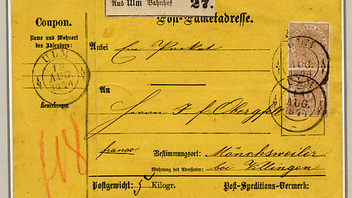 Aus Ulm Bahnhof 27.
Coupon.
Post-Packetadresse.
Name und Wohnort
des Absenders:
Anbei
Ein Packet
ULM
15
AUG.
1874
ULM
AUG.
187
An
Bemerkungen.
Herrn J. f. Obergfell
franco.
Bestimmungsort: Mönchsweiler
Wohnung des Adressaten: bei Villingen
Postgewicht: 5 Kilogr.
Post-Speditions-Vermerk: